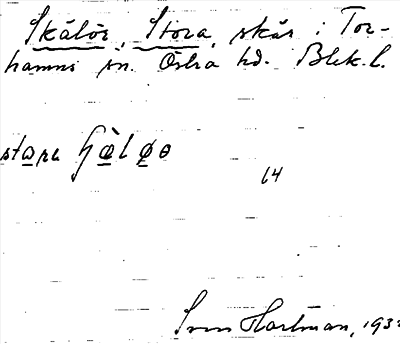 Skälör, Stora, skär i Tor-
hamns sn. Östra hd. Blek. l.
14
Sven Hartman, 193